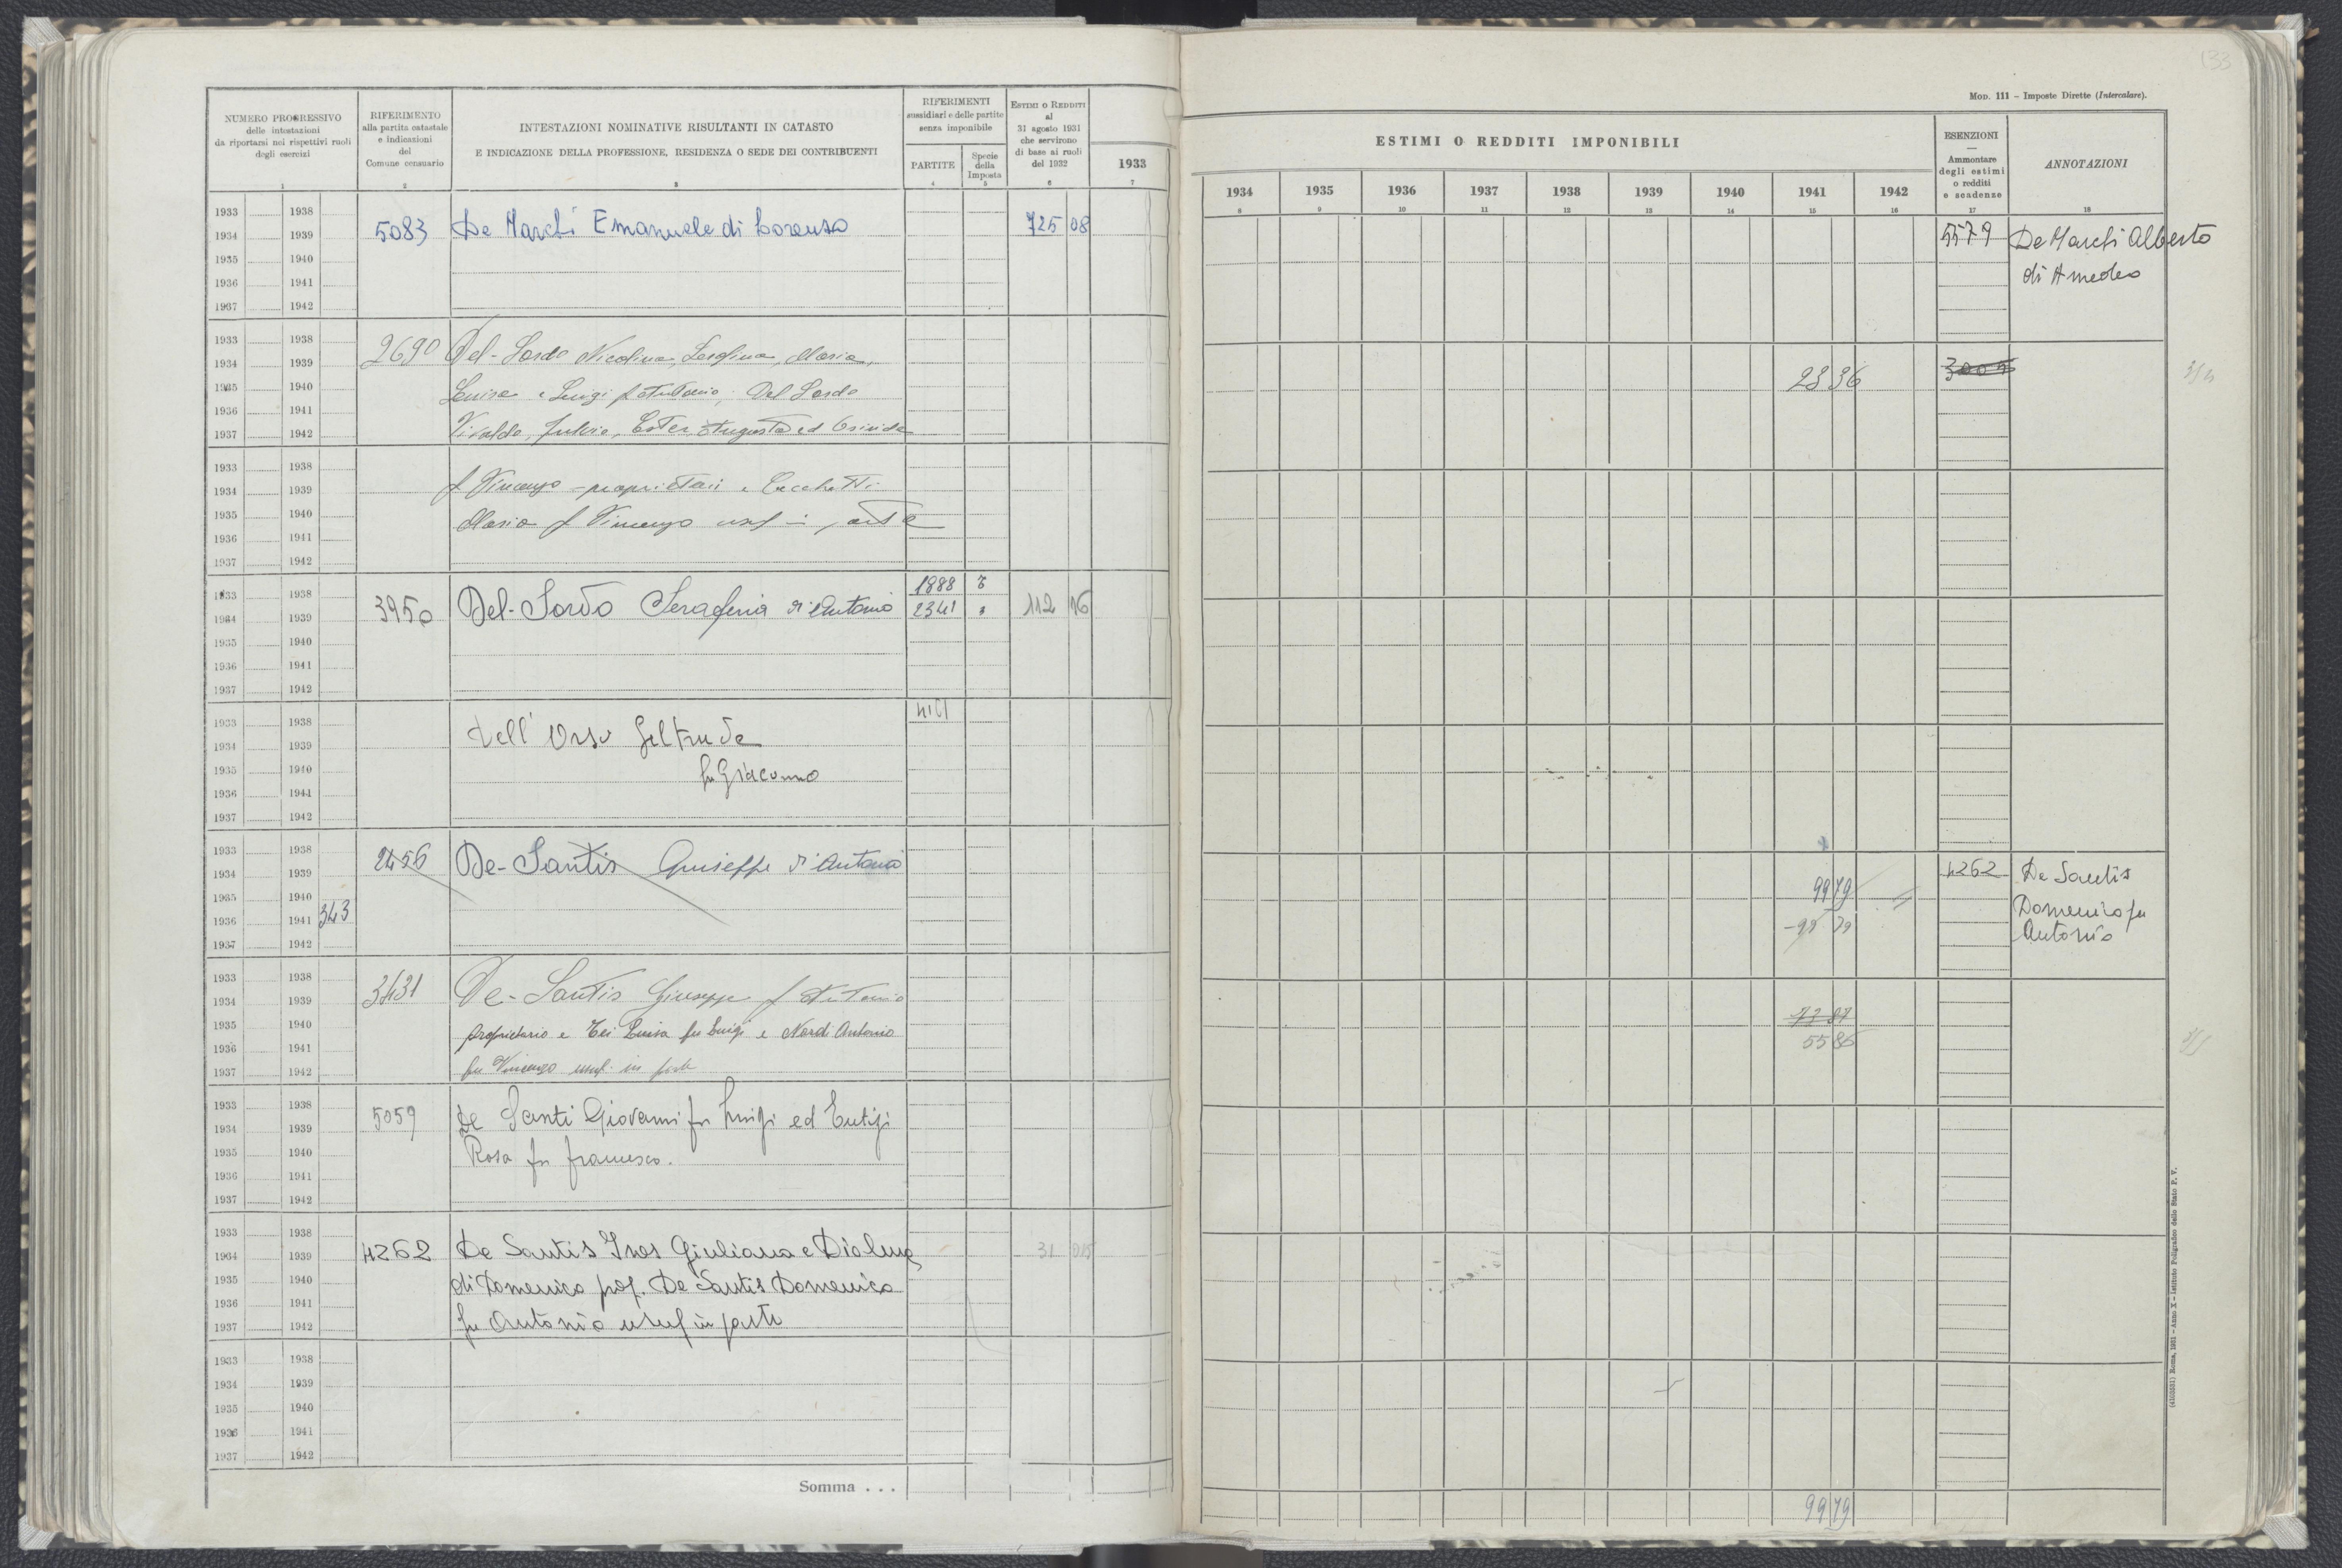 133
Mod. 111 – Imposte Dirette (Intercalare).
NUMERO PROGRESSIVO
delle intestazioni
da riportarsi nei rispettivi ruoli
degli esercizi
1
RIFERIMENTO
alla partita catastale
e indicazioni
del
Comune censuario
2
INTESTAZIONI NOMINATIVE RISULTANTI IN CATASTO
E INDICAZIONE DELLA PROFESSIONE, RESIDENZA O SEDE DEI CONTRIBUENTI
3
RIFERIMENTI
sussidiari e delle partite
senza imponibile
PARTITE
4
Specie
della
Imposta
5
Estimi o Redditi
al
31 agosto 1931
che servirono
di base ai ruoli
del 1932
6
1933
7
ESTIMI O REDDITI IMPONIBILI
1934 1935 1936 1937 1938 1939 1940 1941 1942
8 9 10 11 12 13 14 15 16
ESENZIONI
—
Ammontare
degli estimi
o redditi
e scadenze
17
ANNOTAZIONI
18
1933 1938
1934 1939 5083 De Marchi Emanuele di Lorenzo 725 08 5579 De Marchi Alberto
1935 1940 di Amedeo
1936 1941
1937 1942
1933 1938
1934 1939 2690 Del-Sordo Nicolina, Serafina, Maria, 23 36
1935 1940 Luisa e Luigi f Antonio, Del Sordo
1936 1941
1937 1942 Vivaldo, Fulvia, Ester, Augusta ed
1933 1938
1934 1939 f Vincenzo - proprietari e Cecchetti
1935 1940 Maria f Vincenzo usuf in parte
1936 1941
1937 1942
1933 1938 1888
1934 1939 3950 Del-Sordo Serafina di Antonio 2341 112 16
1935 1940
1936 1941
1937 1942
1933 1938 4161
1934 1939 Dell'Orso Geltrude
1935 1940 fu Giacomo
1936 1941
1937 1942
1933 1938 2456 De-Santis Giuseppe di Antonio
1934 1939 4262 De Santis
1935 1940 99 79
1936 1941 343 Domenico fu
1937 1942 - 99 79 Antonio
1933 1938
1934 1939 3431 De-Santis Giuseppe f Antonio
1935 1940 proprietario e Tei Luisa fu Luigi e Nardi Antonio 73 87
1936 1941 55 86
1937 1942 fu Vincenzo usuf. in parte
1933 1938
1934 1939 5059 De Santi Giovanni fu Luigi ed Eutizi
1935 1940 Rosa fu Francesco.
1936 1941
1937 1942
1933 1938
1934 1939 4262 De Santis Ines Giuliana e 31
1935 1940 di Domenico prop. De Santis Domenico
1936 1941
1937 1942 fu Antonio usuf in parte
1933 1938
1934 1939
1935 1940
1936 1941
1937 1942
Somma . . . 99 79
(4105331) Roma, 1931 – Anno X – Istituto Poligrafico dello Stato P. V.